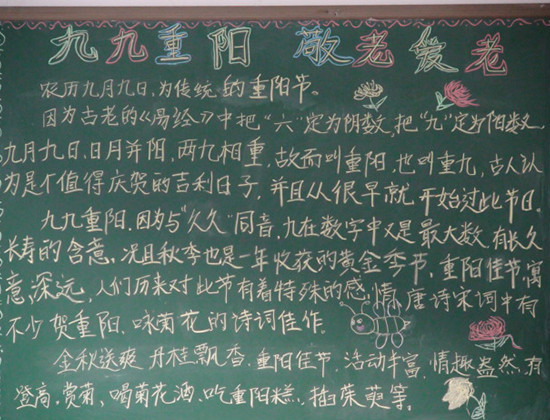 九九重阳 敬老爱老
农历九月九日,为传统的重阳节。
因为古老的《易经》中把“六”定为阴数,把“九”定为阳数,
九月九日,日月并阳,两九相重,故而叫重阳,也叫重九,古人认
为是个值得庆贺的吉利日子,并且从很早就开始过此节日
九九重阳,因为与“久久”同音,九在数字中又是最大数,有长久
长寿的含意,况且秋季也是一年收获的黄金季节,重阳佳节寓
意深远,人们历来对此节有着特殊的感情,唐诗宋词中有
不少贺重阳,咏菊花的诗词佳作。
金秋送爽,丹桂飘香,重阳佳节,活动丰富,情趣盎然,有
登高,赏菊,喝菊花酒,吃重阳糕,插茱萸等。